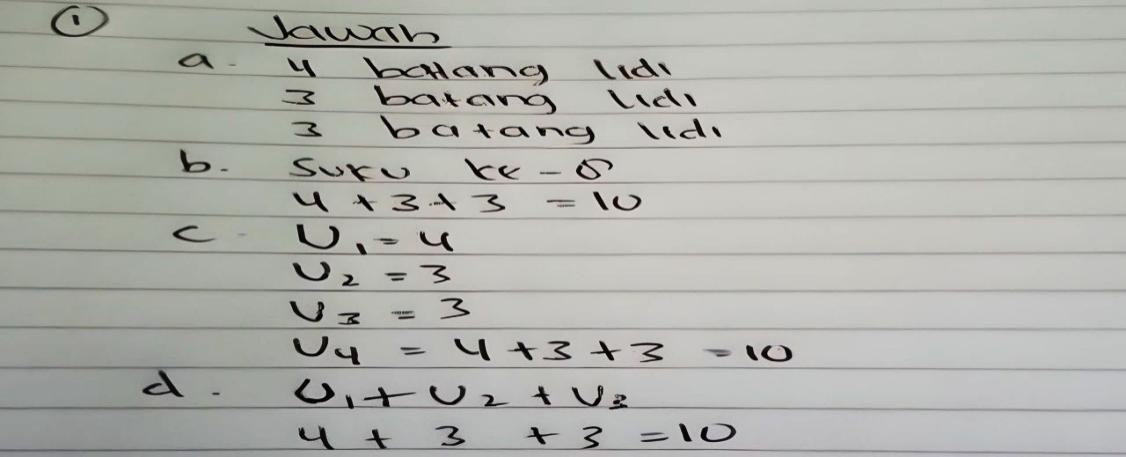 ① Jawab
a. 4 batang lidi
3 batang lidi
3 batang lidi
b. Suku ke - 8
4 + 3 + 3 = 10
c. U₁ = 4
U₂ = 3
U₃ = 3
U₄ = 4 + 3 + 3 = 10
d. U₁ + U₂ + U₃
4 + 3 + 3 = 10